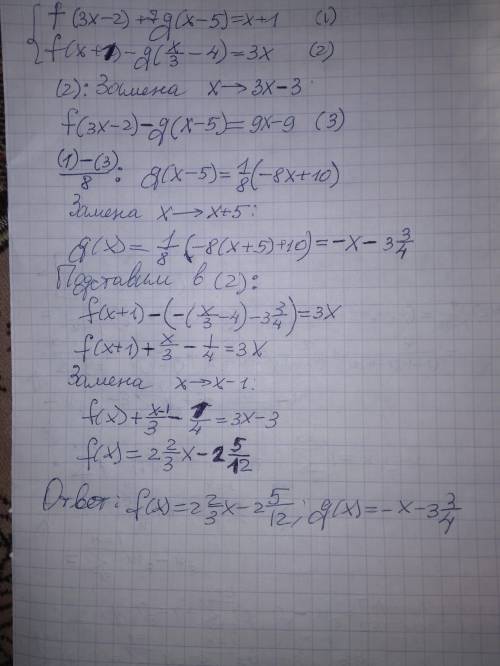 { f(3x-2)+7g(x-5)=x+1 (1)
f(x+1)-g(x/3-4)=3x (2)
(2): Замена x→3x-3
f(3x-2)-g(x-5)=9x-9 (3)
(1)-(3)/8: g(x-5)=1/8(-8x+10)
Замена x→x+5:
g(x)=1/8(-8(x+5)+10)=-x-3 3/4
Подставим в (2):
f(x+1)-(-(x/3-4)-3 3/4)=3x
f(x+1)+x/3-1/4=3x
Замена x→x-1:
f(x)+x-1/3-1/4=3x-3
f(x)=2 2/3x-2 5/12
Ответ: f(x)=2 2/3x-2 5/12; g(x)=-x-3 3/4